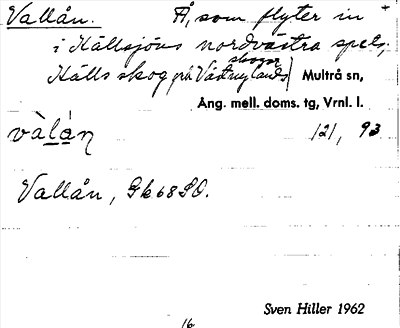 Vallån. Å, som flyter in
i Källsjöns nordvästra spets.
skogar
Källs skog på Västnylands Multrå sn,
Ång. mell. doms. tg, Vrnl. l.
vàlán 121, 93
Vallån, Gk 68 SO.
Sven Hiller 1962
16